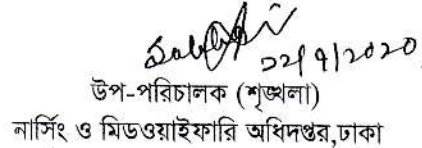 ২২/৭/2020
উপ-পরিচালক (শৃঙ্খলা)
নার্সিং ও মিডওয়াইফারি অধিদপ্তর,ঢাকা